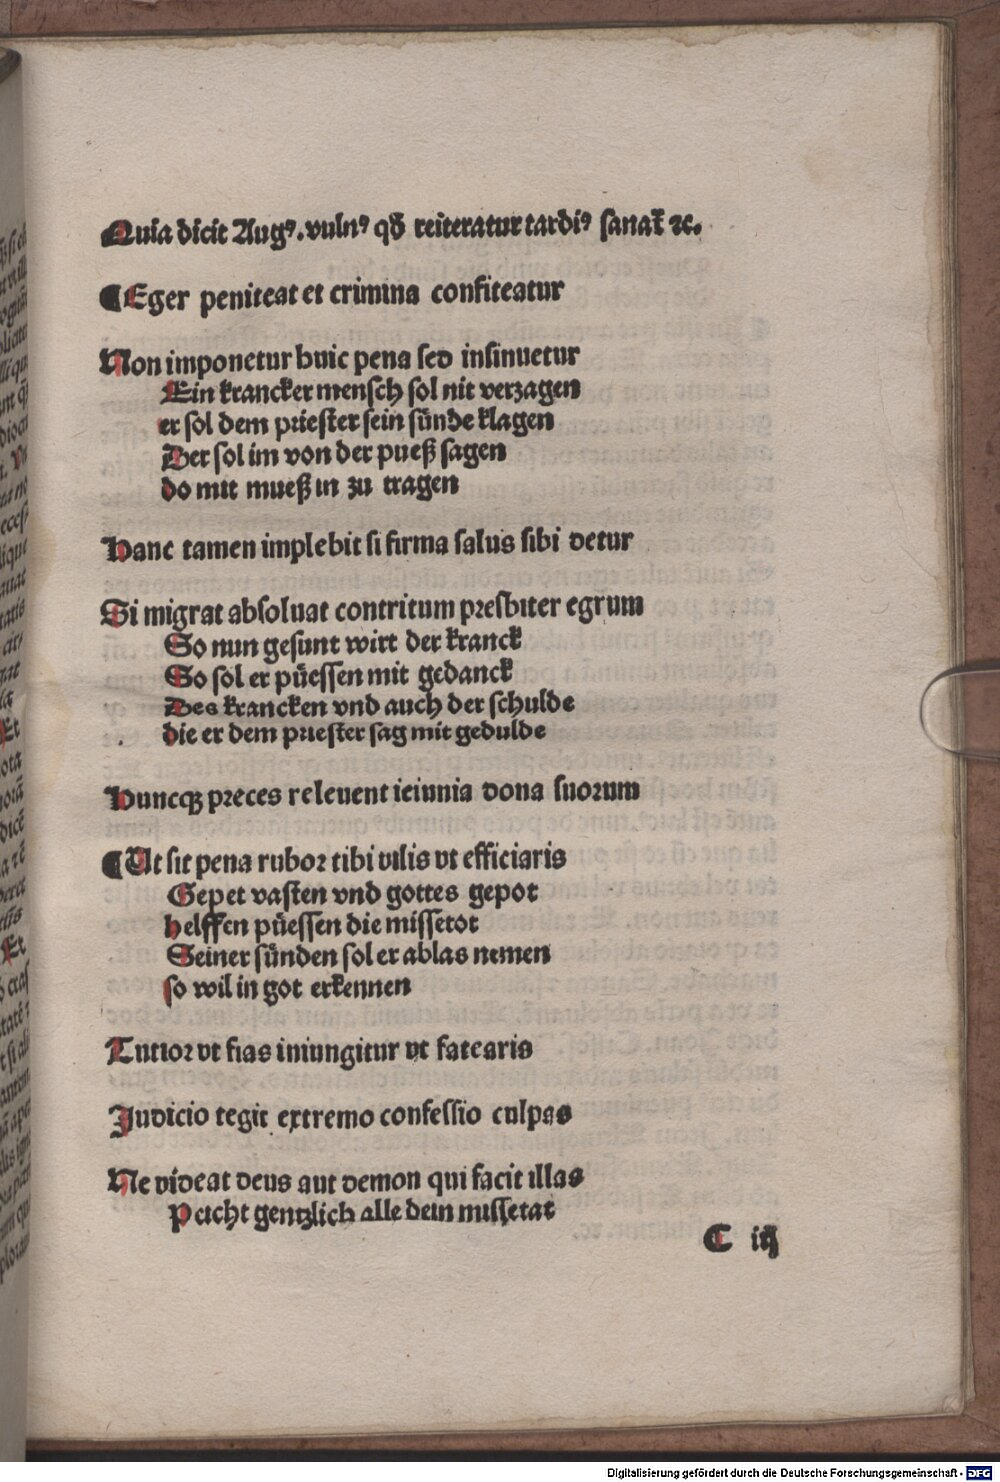 Quia dicit Augꝰ. vulnꝰ qđ reiteratur tardiꝰ sanat̄ ⁊c.
¶Eger peniteat et crimina confiteatur
Non imponetur huic pena sed insinuetur
Ein krancker mensch sol nit verzagen
er sol dem priester sein sünde klagen
Der sol im von der pueß sagen
do mit mueß in zu tragen
Hanc tamen implebit si firma salus sibi detur
Si migrat absoluat contritum presbiter egrum
So nun gesunt wirt der kranck
So sol er püessen mit gedanck
Des krancken vnd auch der schulde
die er dem priester sag mit gedulde
Huncqꝫ preces releuent ieiunia dona suorum
¶Ut sit pena rubor tibi vilis vt efficiaris
Gepet vasten vnd gottes gepot
helffen püessen die missetot
Seiner sünden sol er ablas nemen
so wil in got erkennen
Tutior vt fias iniungitur vt fatearis
Judicio tegit extremo confessio culpas
Ne videat deus aut demon qui facit illas
Peicht gentzlich alle dein missetat
C iij
Digitalisierung gefördert durch die Deutsche Forschungsgemeinschaft - DFG